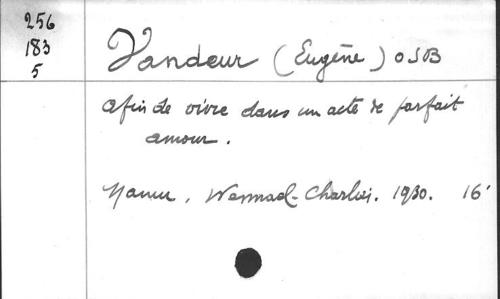 256
183
5
Vandeur (Eugène) OSB
Afin de vivre dans un acte de parfait
amour.
Namur, Wesmael-Charlier. 1930. 16°